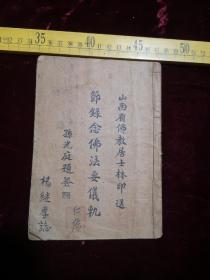 35
40
45
50
山西省佛教居士林印送
節錄念佛法要儀軌
孫光庭題簽
楊継孝誌